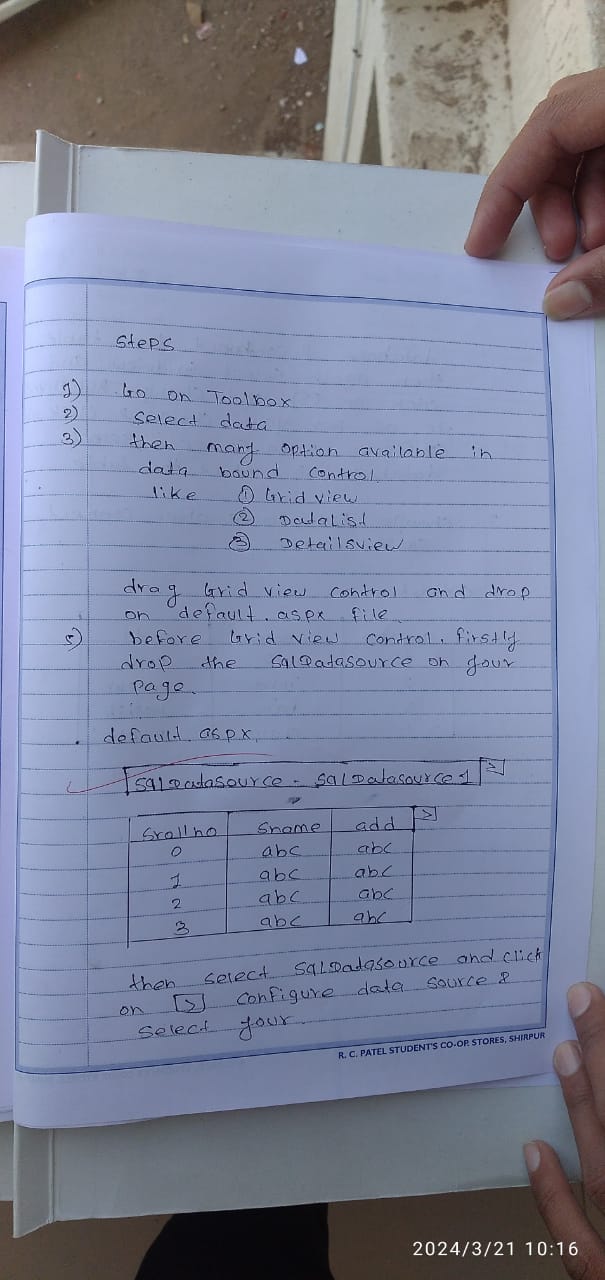 Steps
1) Go on Toolbox
2) Select data
3) then many option available in
data bound control
like ① Grid view
② DataList
③ Detailsview
drag Grid view control and drop
on default.aspx file.
5) before Grid view control. firstly
drop the SqlDatasource on your
page.
. default.aspx.
SqlDatasource - SqlDatasource1 >
Srollno Sname add >
0 abc abc
1 abc abc
2 abc abc
3 abc abc
then select SqlDatasource and click
on [>] configure data source &
select your
R. C. PATEL STUDENT'S CO-OP. STORES, SHIRPUR
2024/3/21 10:16